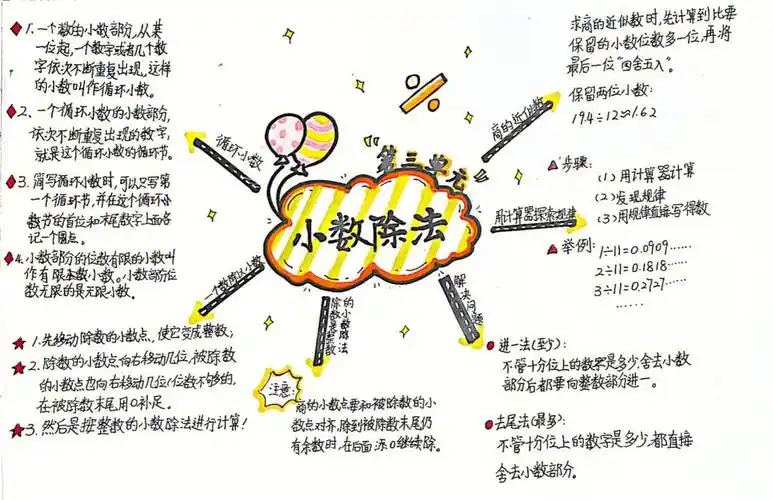 第三单元
小数除法
循环小数
◆1.一个数的小数部分,从某
一位起,一个数字或者几个数
字依次不断重复出现,这样
的小数叫作循环小数。
◆2、一个循环小数的小数部分,
依次不断重复出现的数字,
就是这个循环小数的循环节。
◆3.简写循环小数时,可以只写第
一个循环节,并在这个循环小
数节的首位和末尾数字上面各
记一个圆点。
◆4.小数部分的位数有限的小数叫
作有限小数。小数部分位
数无限的是无限小数。
一个数除以小数
★1.先移动除数的小数点,使它变成整数;
★2.除数的小数点向右移动几位,被除数
的小数点也向右移动几位(位数不够的,
在被除数末尾用0补足。
★3.然后是按整数的小数除法进行计算!
除数是整数
的小数除法
注意:
商的小数点要和被除数的小
数点对齐,除到被除数末尾仍
有余数时,在后面添0继续除。
商的近似数
求商的近似数时,先计算到比要
保留的小数位数多一位,再将
最后一位“四舍五入”。
保留两位小数:
19.4÷12≈1.62
用计算器探索规律
▲步骤:
(1)用计算器计算
(2)发现规律
(3)用规律直接写得数
▲举例:1÷11=0.0909······
2÷11=0.1818······
3÷11=0.2727······
······
解决问题
●进一法(至少):
不管十分位上的数字是多少,舍去小数
部分后都要向整数部分进一。
●去尾法(最多):
不管十分位上的数字是多少,都直接
舍去小数部分。